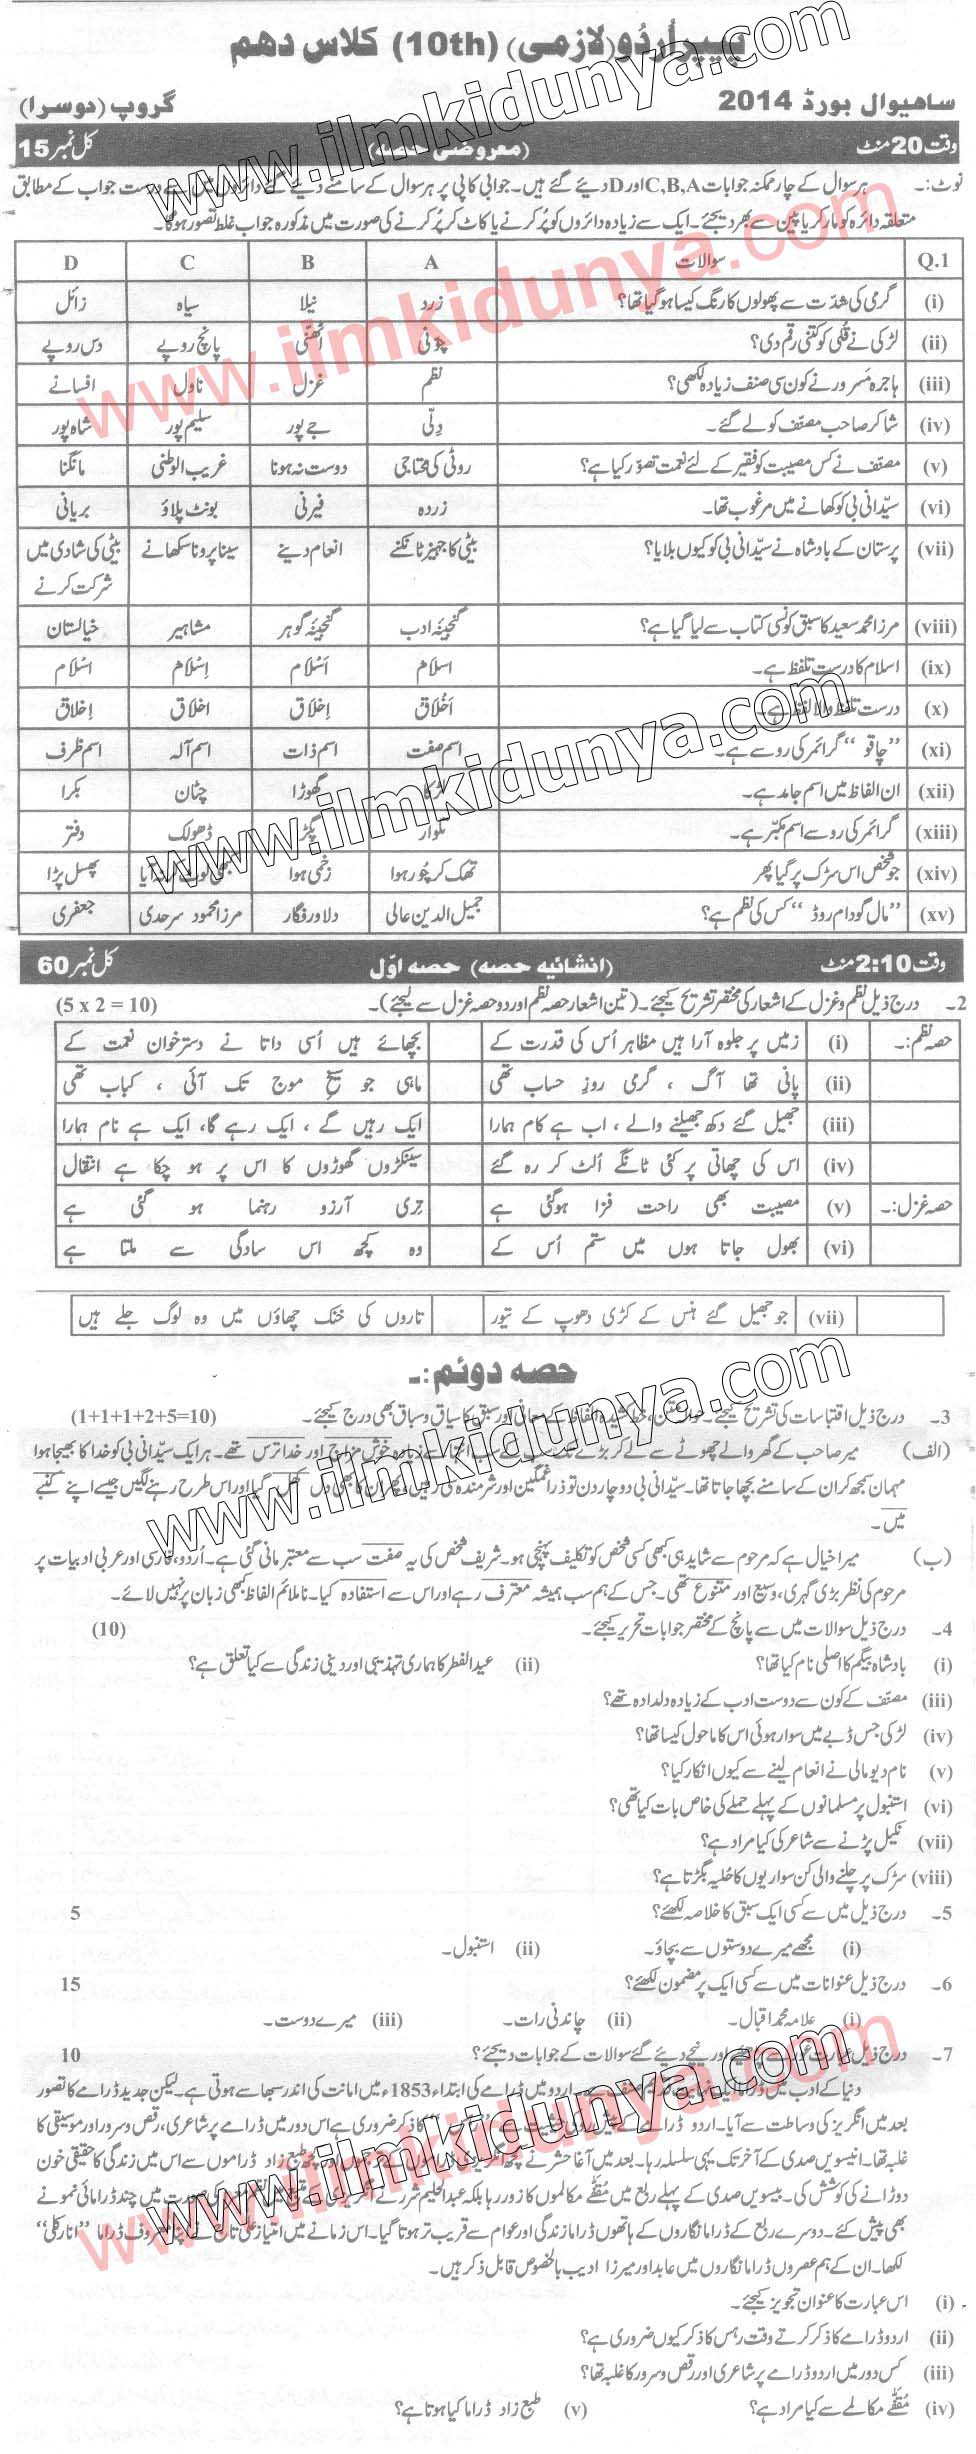 پیپر اُردو (لازمی) (10th) کلاس دھم
ساھیوال بورڈ 2014 گروپ (دوسرا)
وقت 20 منٹ (معروضی حصہ) کل نمبر 15
نوٹ:۔ ہر سوال کے چار ممکنہ جوابات C,B,A اور D دیئے گئے ہیں۔ جوابی کاپی پر ہر سوال کے سامنے دیئے گئے دائروں میں سے درست جواب کے مطابق
متعلقہ دائرہ کو مارکر یا پین سے بھر دیجئے۔ ایک سے زیادہ دائروں کو پُر کرنے یا کاٹ کر پُر کرنے کی صورت میں مذکورہ جواب غلط تصور ہوگا۔
Q.1 سوالات A B C D
(i) گرمی کی شدّت سے پھولوں کا رنگ کیسا ہو گیا تھا؟ زرد نیلا سیاہ زائل
(ii) لڑکی نے قُلی کو کتنی رقم دی؟ چوّنی اٹھنّی پانچ روپے دس روپے
(iii) ہاجرہ مسرور نے کون سی صنف زیادہ لکھی؟ نظم غزل ناول افسانے
(iv) شاکر صاحب مصنف کو لے گئے۔ دِلّی جے پور سلیم پور شاہ پور
(v) مصنف نے کس مصیبت کو فقیر کے لئے نعمت تصوّر کیا ہے؟ روٹی کی محتاجی دوست نہ ہونا غریب الوطنی مانگنا
(vi) سیّدانی بی کو کھانے میں مرغوب تھا۔ زردہ فیرنی بونٹ پلاؤ بریانی
(vii) پرستان کے بادشاہ نے سیّدانی بی کو کیوں بلایا؟ بیٹی کا جہیز ٹانکنے انعام دینے سینا پرونا سکھانے بیٹی کی شادی میں شرکت کرنے
(viii) مرزا محمد سعید کا سبق کونسی کتاب سے لیا گیا ہے؟ گنجینۂ ادب گنجینۂ گوہر مشاہیر خیالستان
(ix) اسلام کا درست تلفظ ہے۔ اسلام اَسْلام اِسْلام اسْلام
(x) درست تلفظ والا لفظ ہے۔ اَخْلاق اِخلاق اخلاق اِخلاق
(xi) ”چاقو“ گرائمر کی رو سے ہے۔ اسم صفت اسم ذات اسم آلہ اسم ظرف
(xii) ان الفاظ میں اسم جامد ہے۔ لڑکا گھوڑا چٹان بکرا
(xiii) گرائمر کی رو سے اسم مکبّر ہے۔ تلوار پگڑ ڈھولک دفتر
(xiv) جو شخص اس سڑک پر گیا پھر تھک کر چُور ہوا زخمی ہوا کبھی لوٹ کر نہ آیا پھسل پڑا
(xv) ”مال گودام روڈ“ کس کی نظم ہے؟ جمیل الدین عالی دلاور فگار مرزا محمود سرحدی جعفری
وقت 2:10 منٹ (انشائیہ حصہ) حصہ اوّل کل نمبر 60
2۔ درج ذیل نظم و غزل کے اشعار کی مختصر تشریح کیجئے۔ (تین اشعار حصہ نظم اور دو حصہ غزل سے لیجئے)۔ (5 x 2 = 10)
حصہ نظم:۔ (i) زمیں پر جلوہ آرا ہیں مظاہر اُس کی قدرت کے بچھائے ہیں اُسی داتا نے دسترخوان نعمت کے
(ii) پانی تھا آگ ، گرمی روزِ حساب تھی ماہی جو سیخِ موج تک آئی ، کباب تھی
(iii) جھیل گئے دکھ جھیلنے والے ، اب ہے کام ہمارا ایک رہیں گے ، ایک رہے گا، ایک ہے نام ہمارا
(iv) اس کی چھاتی پر کئی ٹانگے اُلٹ کر رہ گئے سینکڑوں گھوڑوں کا اس پر ہو چکا ہے انتقال
حصہ غزل:۔ (v) مصیبت بھی راحت فزا ہوگئی ہے تری آرزو رہنما ہو گئی ہے
(vi) بھول جاتا ہوں میں ستم اُس کے وہ کچھ اس سادگی سے ملتا ہے
(vii) جو جھیل گئے ہنس کے کڑی دھوپ کے تیور تاروں کی خنک چھاؤں میں وہ لوگ جلے ہیں
حصہ دوئم:۔
3۔ درج ذیل اقتباسات کی تشریح کیجئے۔ خط کشیدہ الفاظ کے معانی اور سبق کا سیاق و سباق بھی درج کیجئے۔ (1+1+1+2+5=10)
(الف) میر صاحب کے گھر والے چھوٹے سے لے کر بڑے تک سب کے سب زیادہ خوش مزاج اور خدا ترس تھے۔ ہر ایک سیّدانی بی کو خدا کا بھیجا ہوا
مہمان سمجھ کر ان کے سامنے بچھا جاتا تھا۔ سیّدانی بی دو چار دن تو ذرا غمگین اور شرمندہ سی رہیں، پھر ان کا بھی دل گیا اور اس طرح رہنے لگیں جیسے اپنے کنبے
میں۔
(ب) میرا خیال ہے کہ مرحوم سے شاید ہی کبھی کسی شخص کو تکلیف پہنچی ہو۔ شریف شخص کی یہ صفت سب سے معتبر مانی گئی ہے۔ اُردو، فارسی اور عربی ادبیات پر
مرحوم کی نظر بڑی گہری، وسیع اور متنوع تھی۔ جس کے ہم سب ہمیشہ معترف رہے اور اس سے استفادہ کیا۔ ناملائم الفاظ کبھی زبان پر نہیں لائے۔
4۔ درج ذیل سوالات میں سے پانچ کے مختصر جوابات تحریر کیجئے۔ (10)
(i) بادشاہ بیگم کا اصلی نام کیا تھا؟ (ii) عید الفطر کا ہماری تہذیبی اور دینی زندگی سے کیا تعلق ہے؟
(iii) مصنف کے کون سے دوست ادب کے زیادہ دلدادہ تھے؟
(iv) لڑکی جس ڈبے میں سوار ہوئی اس کا ماحول کیسا تھا؟
(v) نام دیو مالی نے انعام لینے سے کیوں انکار کیا؟
(vi) استنبول پر مسلمانوں کے پہلے حملے کی خاص بات کیا تھی؟
(vii) نکیل پڑنے سے شاعر کی کیا مراد ہے؟
(viii) سڑک پر چلنے والی کن سواریوں کا حُلیہ بگڑتا ہے؟
5۔ درج ذیل میں سے کسی ایک سبق کا خلاصہ لکھئے؟ 5
(i) مجھے میرے دوستوں سے بچاؤ۔ (ii) استنبول۔
6۔ درج ذیل عنوانات میں سے کسی ایک پر مضمون لکھئے؟ 15
(i) علامہ محمد اقبال۔ (ii) چاندنی رات۔ (iii) میرے دوست۔
7۔ درج ذیل عبارت غور سے پڑھیئے اور نیچے دیئے گئے سوالات کے جوابات دیجئے؟ 10
دنیا کے ادب میں ڈراما ایک قدیم صنف ہے۔ اردو میں ڈرامے کی ابتداء 1853ء میں امانت کی اندر سبھا سے ہوتی ہے۔ لیکن جدید ڈرامے کا تصور
بعد میں انگریز کی وساطت سے آیا۔ اردو ڈرامے کے کا ذکر ضروری ہے اس دور میں ڈرامے پر شاعری، رقص و سرور اور موسیقی کا
غلبہ تھا۔ انیسویں صدی کے آخر تک یہی سلسلہ رہا۔ بعد میں آغا حشر نے کچھ انگریزی ڈراموں کے ترجموں اور کچھ طبع زاد ڈراموں سے اس میں زندگی کا حقیقی خون
دوڑانے کی کوشش کی۔ بیسویں صدی کے پہلے ربع میں مُقفّٰے مکالموں کا زور رہا بلکہ عبدالحلیم شرر نے انگریزی کی صورت میں چند ڈرامائی نمونے
بھی پیش کئے۔ دوسرے ربع کے ڈراما نگاروں کے ہاتھوں ڈراما زندگی اور عوام سے قریب تر ہوتا گیا۔ اس زمانے میں امتیاز علی تاج نے اپنا معروف ڈراما ”انار کلی“
لکھا۔ ان کے ہم عصروں ڈراما نگاروں میں عابد اور میرزا ادیب بالخصوص قابل ذکر ہیں۔
(i) اس عبارت کا عنوان تجویز کیجئے۔
(ii) اردو ڈرامے کا ذکر کرتے وقت رہس کا ذکر کیوں ضروری ہے؟
(iii) کس دور میں اردو ڈرامے پر شاعری اور رقص و سرور کا غلبہ تھا؟
(iv) مُقفّٰے مکالمے سے کیا مراد ہے؟ (v) طبع زاد ڈراما کیا ہوتا ہے؟
www.ilmkidunya.com
www.ilmkidunya.com
www.ilmkidunya.com
www.ilmkidunya.com
www.ilmkidunya.com
www.ilmkidunya.com